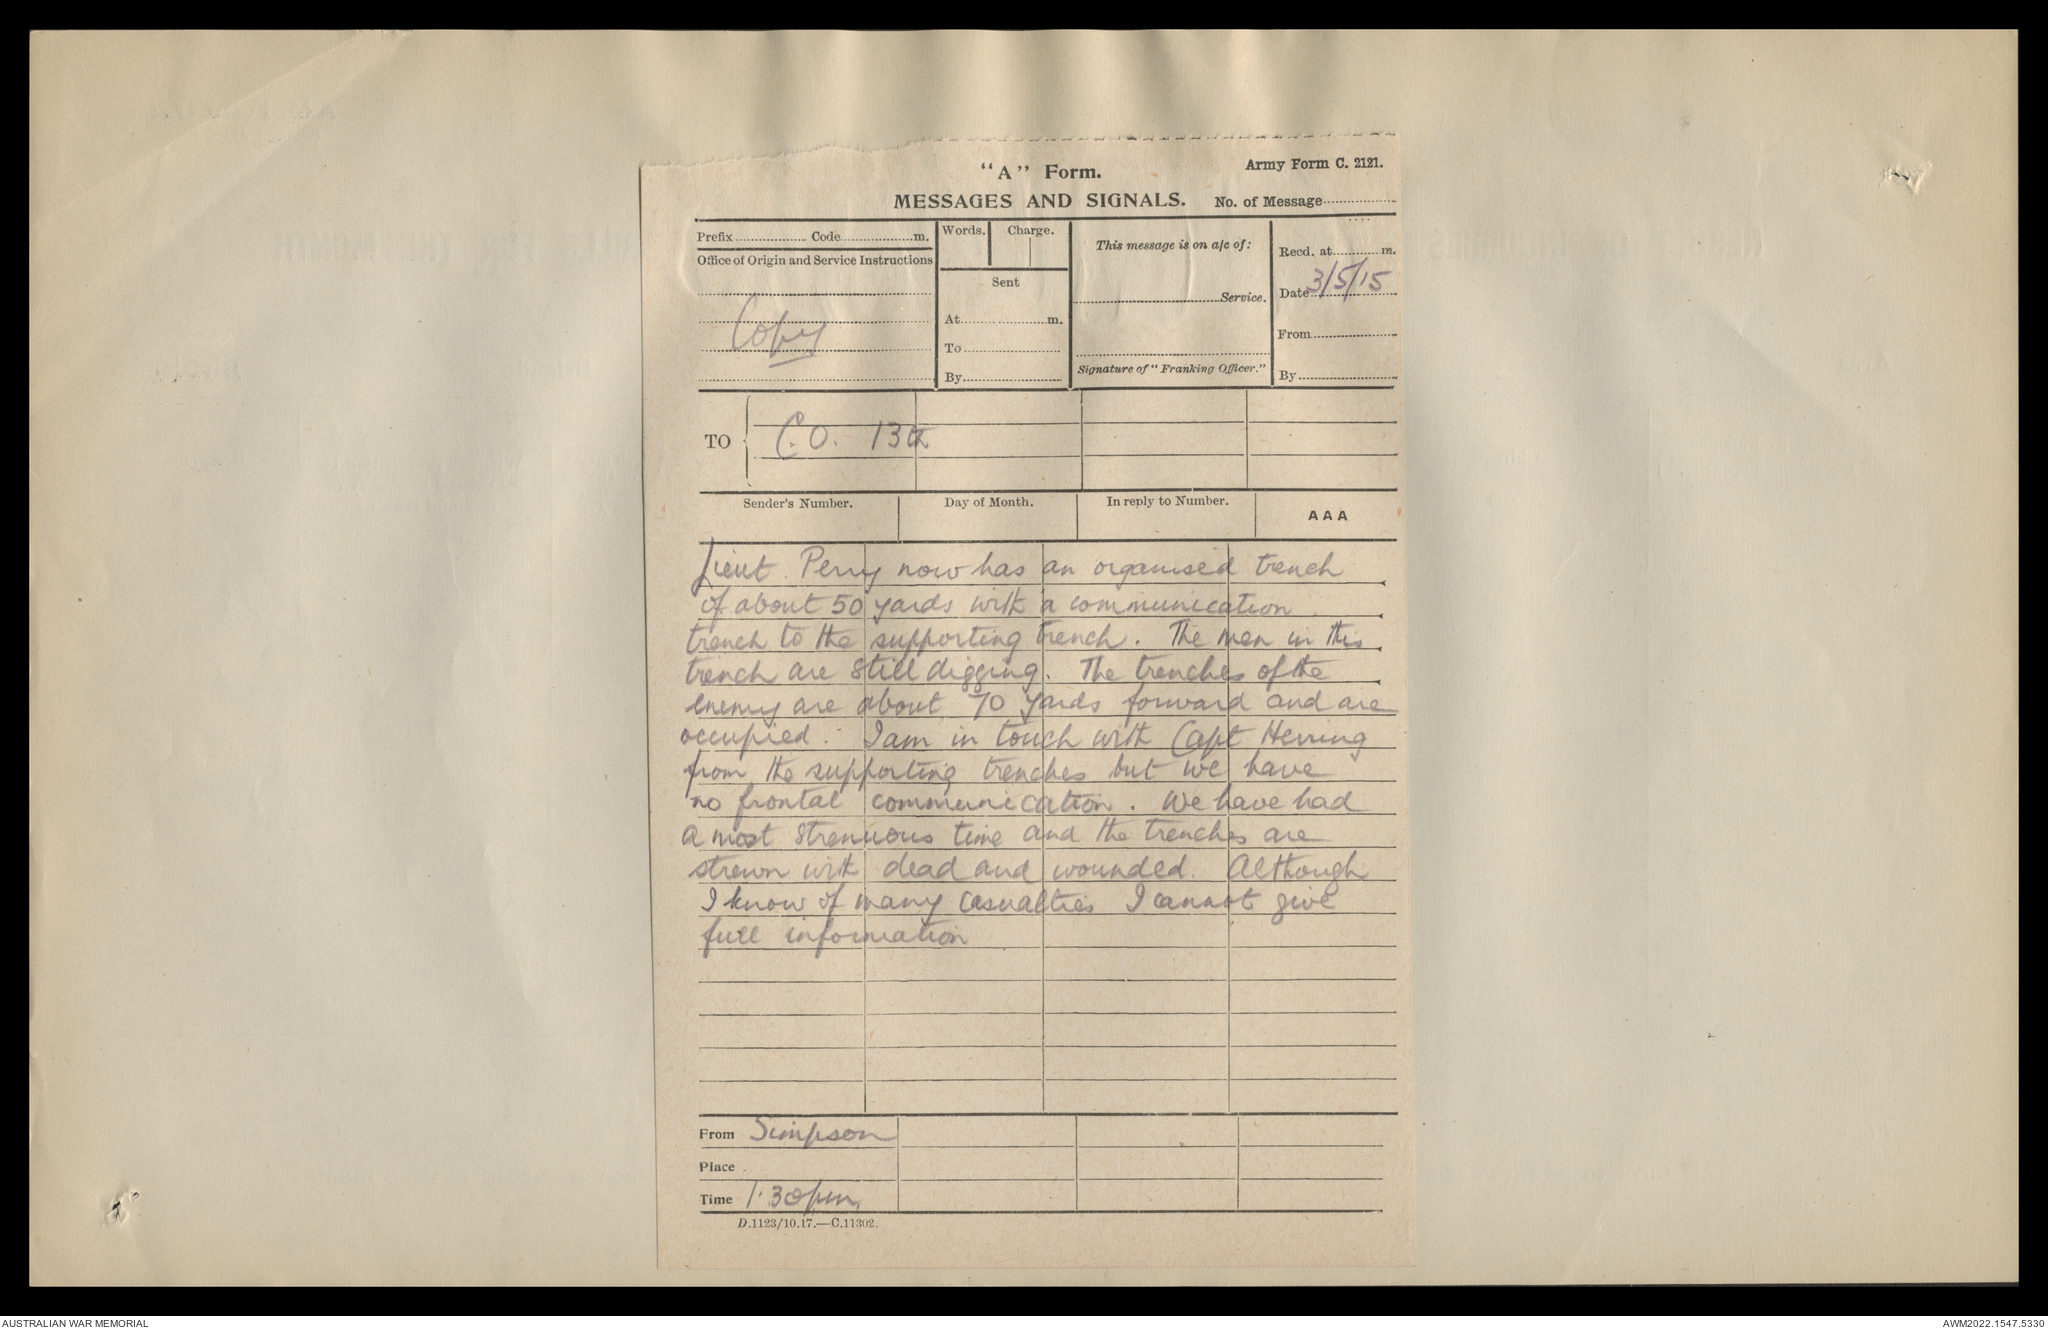 "A" Form.
Army Form C. 2121.
MESSAGES AND SIGNALS.
No. of Message
Prefix Code m.
Words. Charge.
This message is on a/c of:
Recd. at m.
Office of Origin and Service Instructions
Sent
Service.
Date 3/5/15
Copy
At m.
From
To
By
Signature of "Franking Officer."
By
TO
C.O. 13th
Sender's Number. Day of Month. In reply to Number. AAA
Lieut. Perry now has an organised trench
of about 50 yards with a communication
trench to the supporting trench. The men in this
trench are still digging. The trenches of the
enemy are about 70 yards forward and are
occupied. I am in touch with Capt Herring
from the supporting trenches but we have
no frontal communication. We have had
a most strenuous time and the trenches are
strewn with dead and wounded. Although
I know of many casualties I cannot give
full information
From Simpson
Place
Time 1.30pm
D.1123/10.17.—C.11302.
AUSTRALIAN WAR MEMORIAL
AWM2022.1547.5330